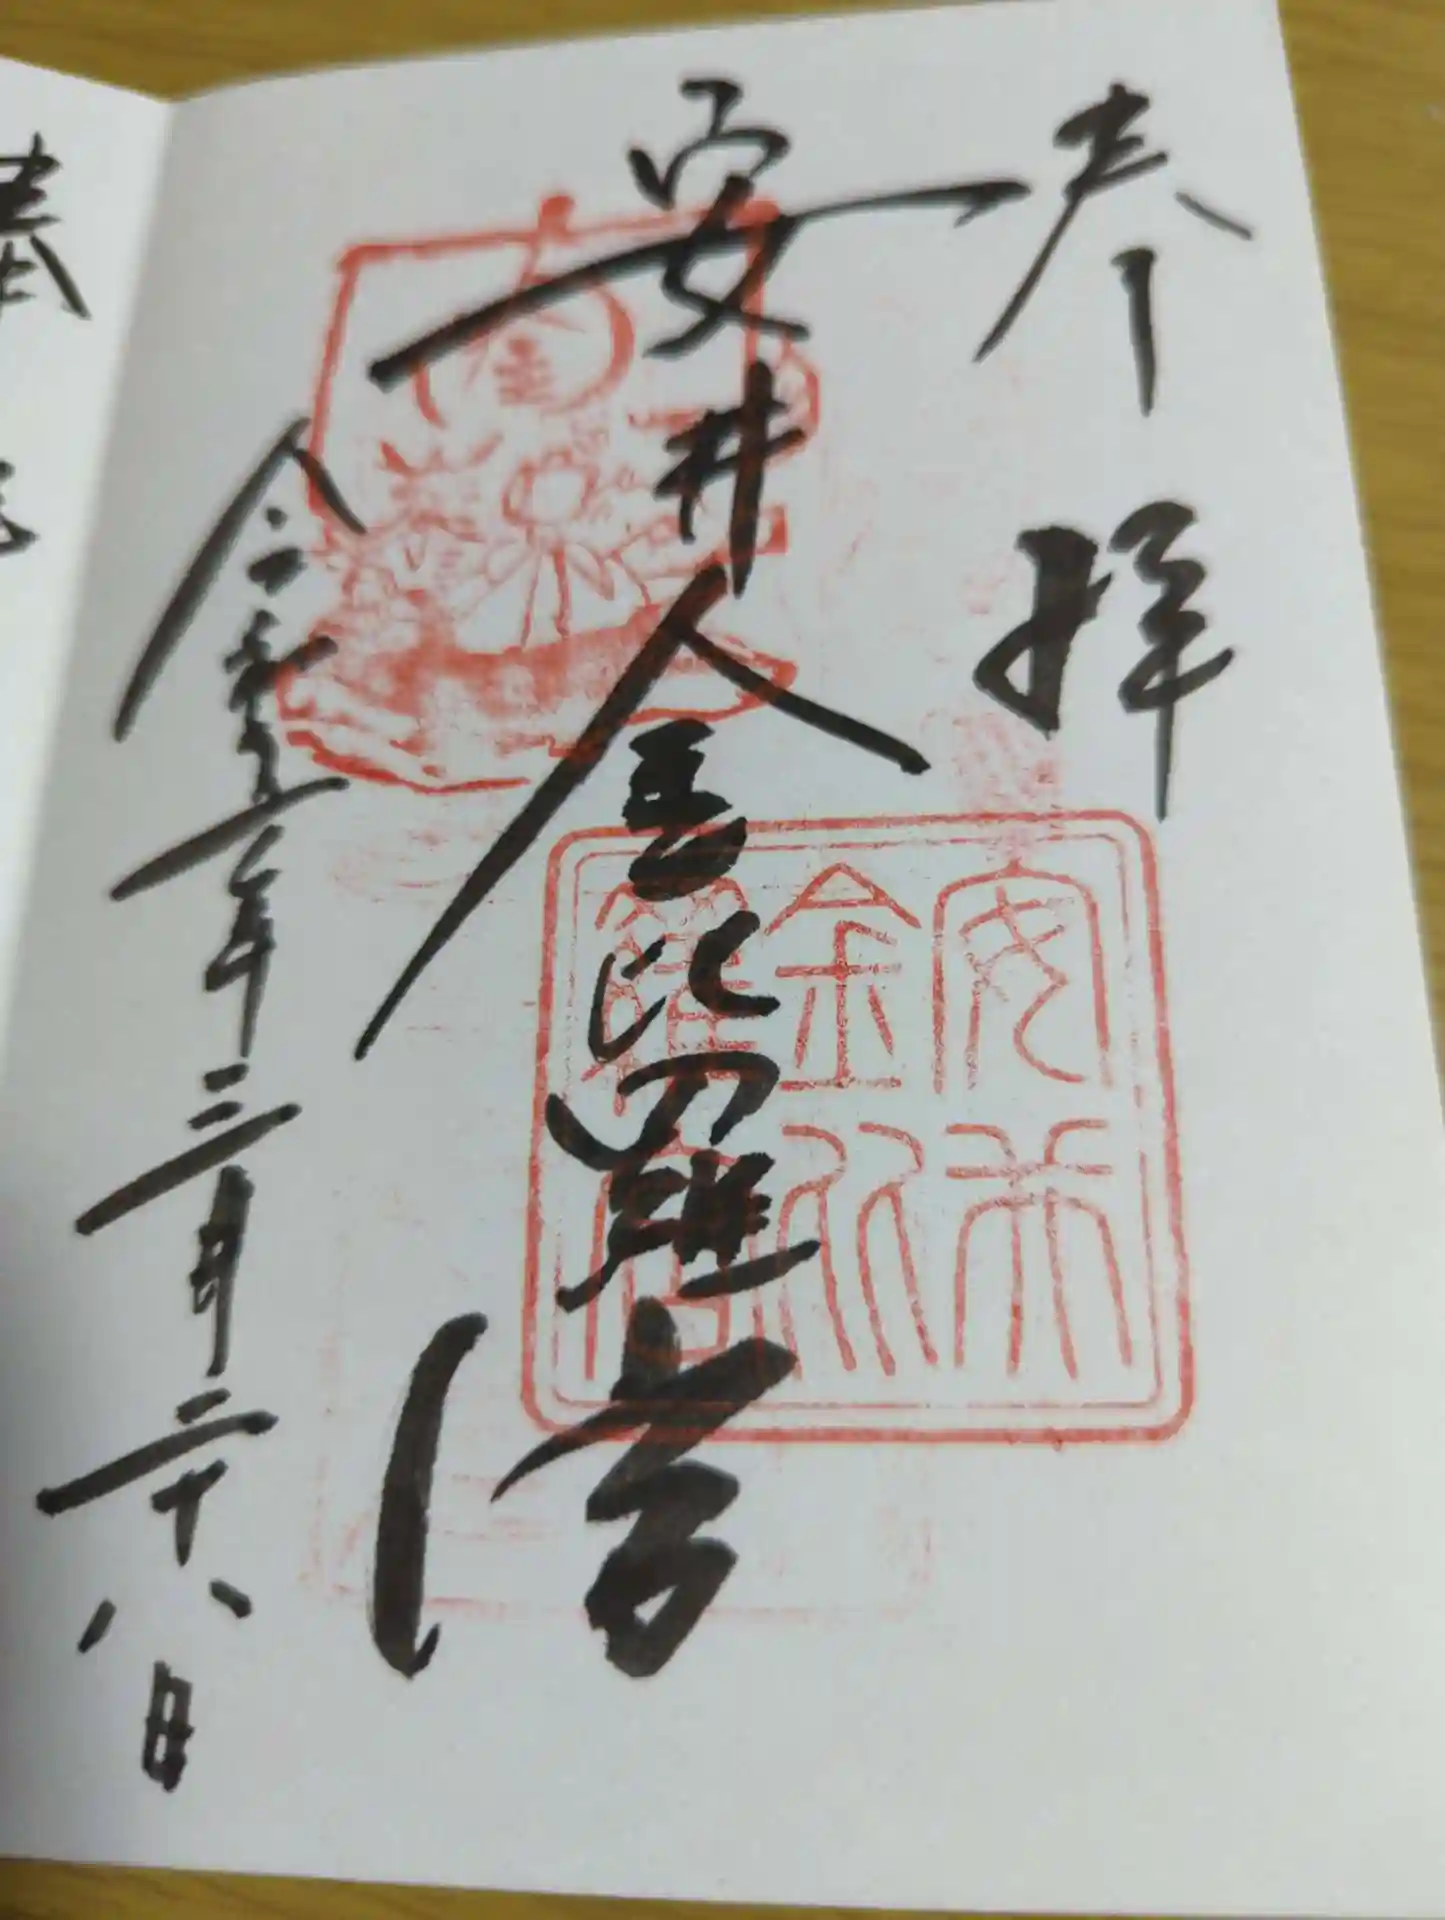 奉拝
安井金比羅宮
安井
金比
羅宮
令和五年三月二十八日